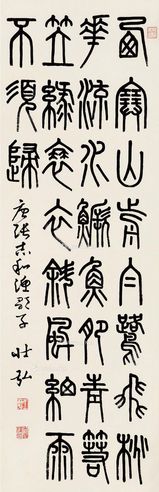 西塞山前白鷺飛桃
華流水鱖魚肥青箬
笠綠蓑衣斜風細雨
不須歸
唐張志和漁歌子 壯弘